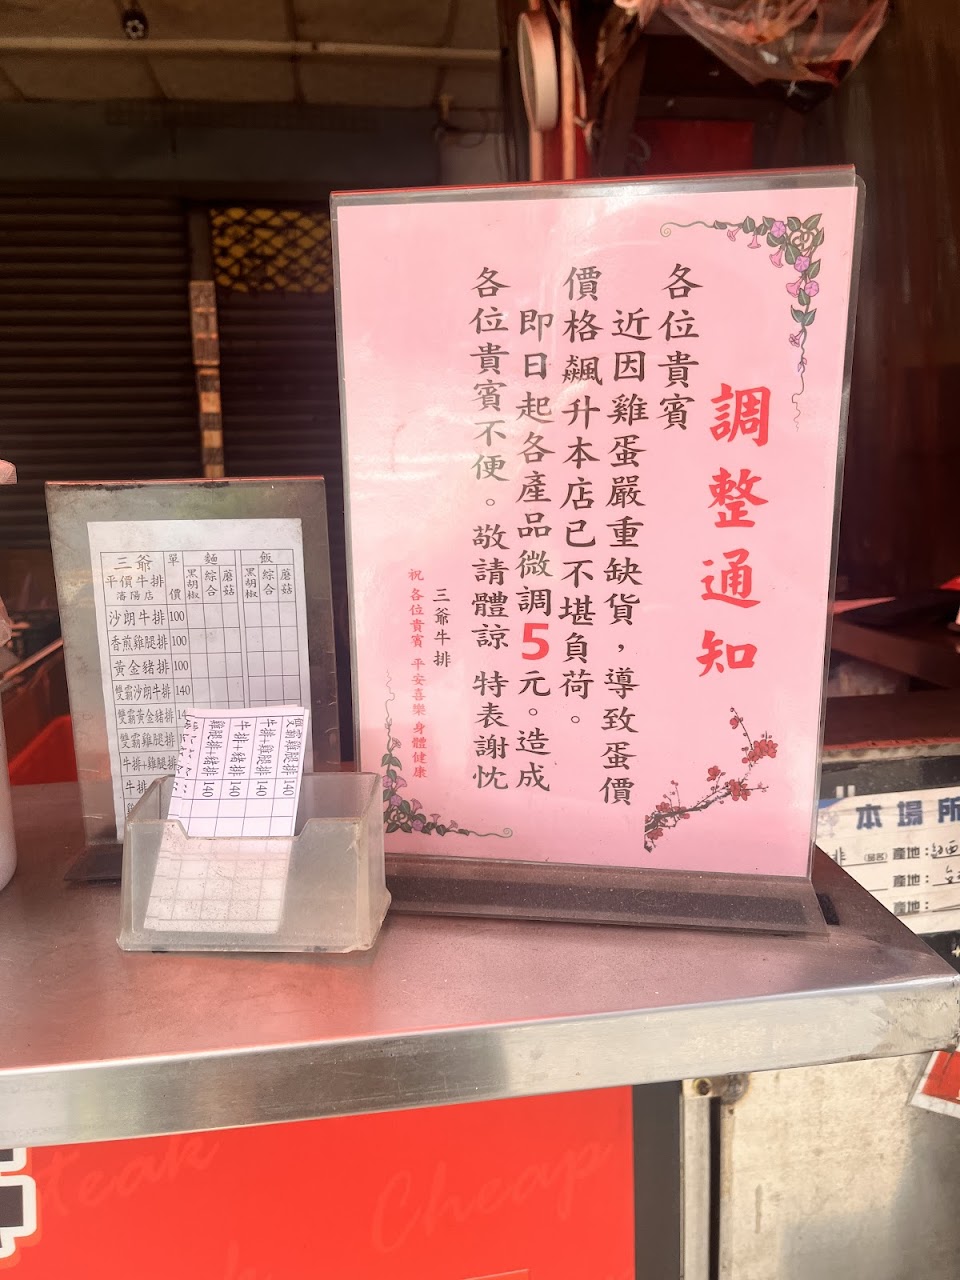 調整通知
各位貴賓
近因雞蛋嚴重缺貨，導致蛋價
價格飆升本店已不堪負荷。
即日起各產品微調5元。造成
各位貴賓不便。敬請體諒 特表謝忱
三爺牛排
祝 各位貴賓 平安喜樂 身體健康
三爺 單價 麵 飯
平價牛排
瀋陽店
黑胡椒 綜合 蘑菇 黑胡椒 綜合 蘑菇
沙朗牛排 100
香煎雞腿排 100
黃金豬排 100
雙霸沙朗牛排 140
雙霸黃金豬排 14
雙霸雞腿排
牛排+雞腿排
牛排
雙霸雞腿排 140
牛排+雞腿排 140
牛排+豬排 140
雞腿排+豬排 140
本場所
排 (品名) 產地：
產地：
產地：
Steak
Cheap